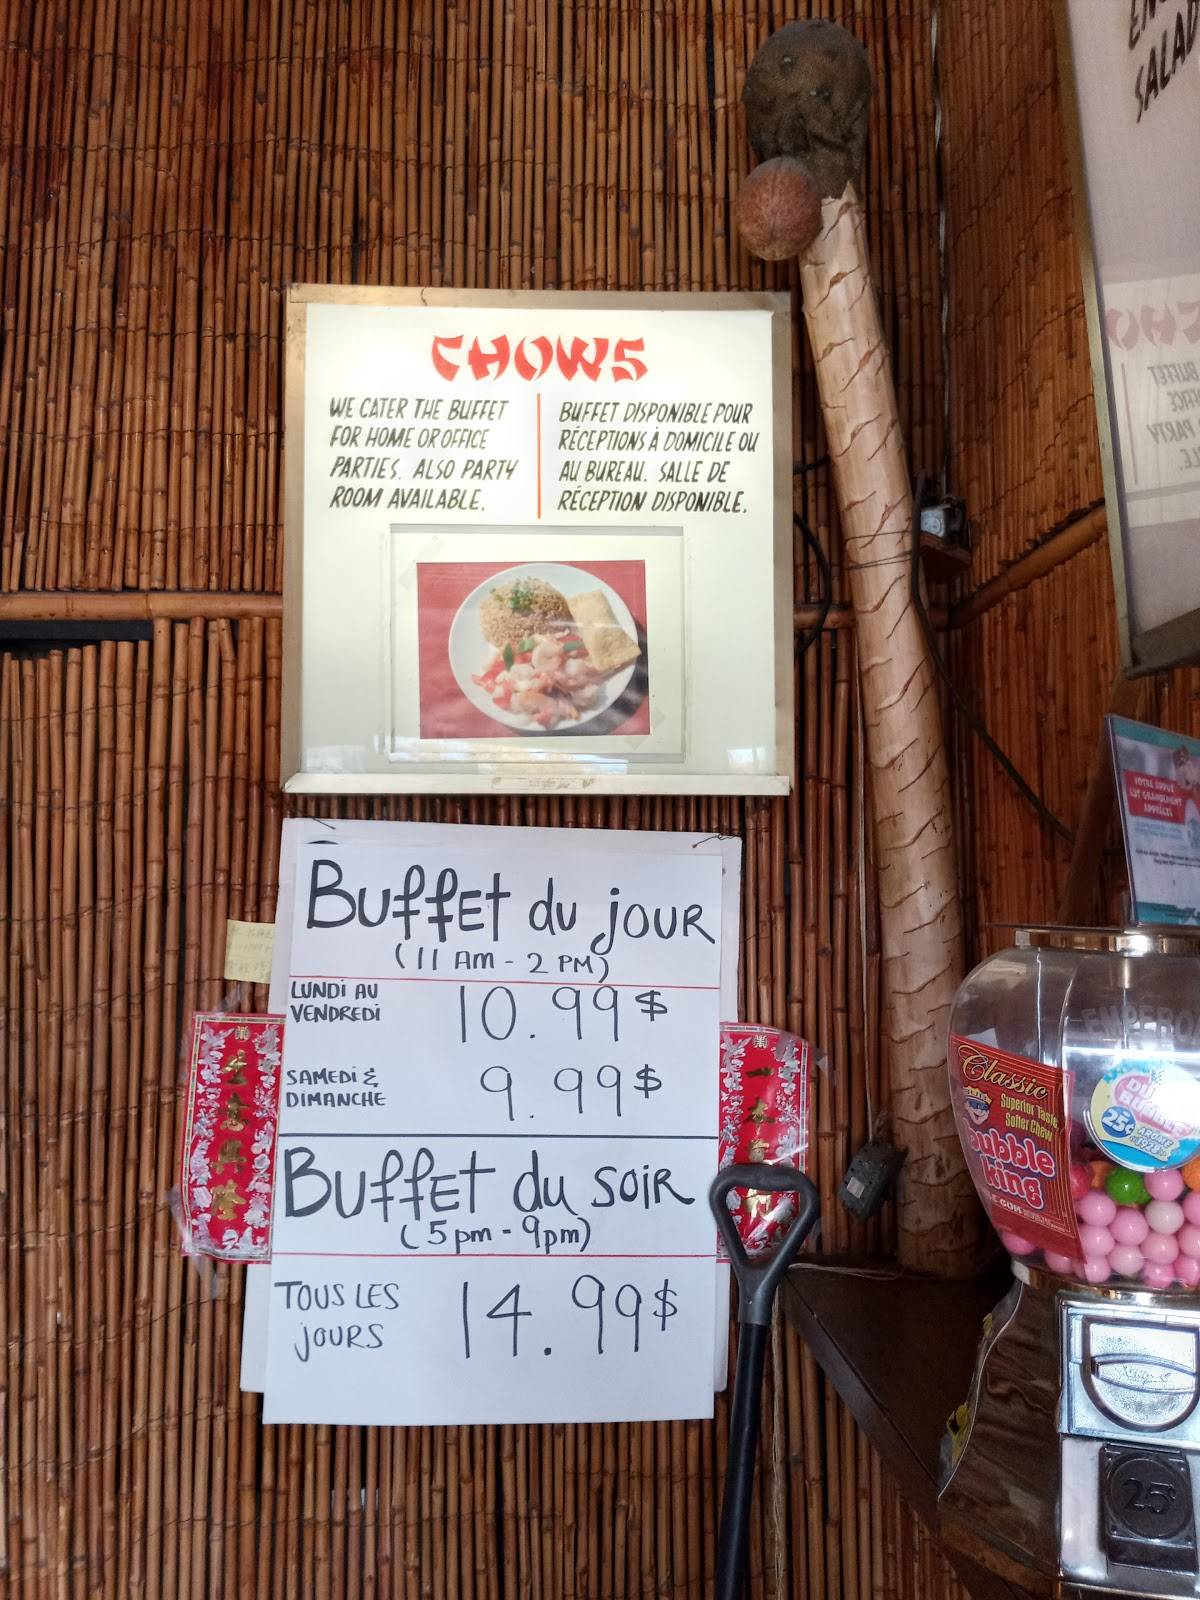 CHOWS
WE CATER THE BUFFET
FOR HOME OR OFFICE
PARTIES. ALSO PARTY
ROOM AVAILABLE.
BUFFET DISPONIBLE POUR
RÉCEPTIONS À DOMICILE OU
AU BUREAU. SALLE DE
RÉCEPTION DISPONIBLE.
BUFFET du jOUR
(11 AM - 2 PM)
LUNDi AU
VENDREDi
10.99$
SAMEDi &
DiMANCHE
9.99$
BUFFET du SOiR
(5pm - 9pm)
TOUS LES
jOURS
14.99$
生意興隆
一本
SALAD
Classic
Superior Taste
Softer Chew
bubble
king
25¢
25¢